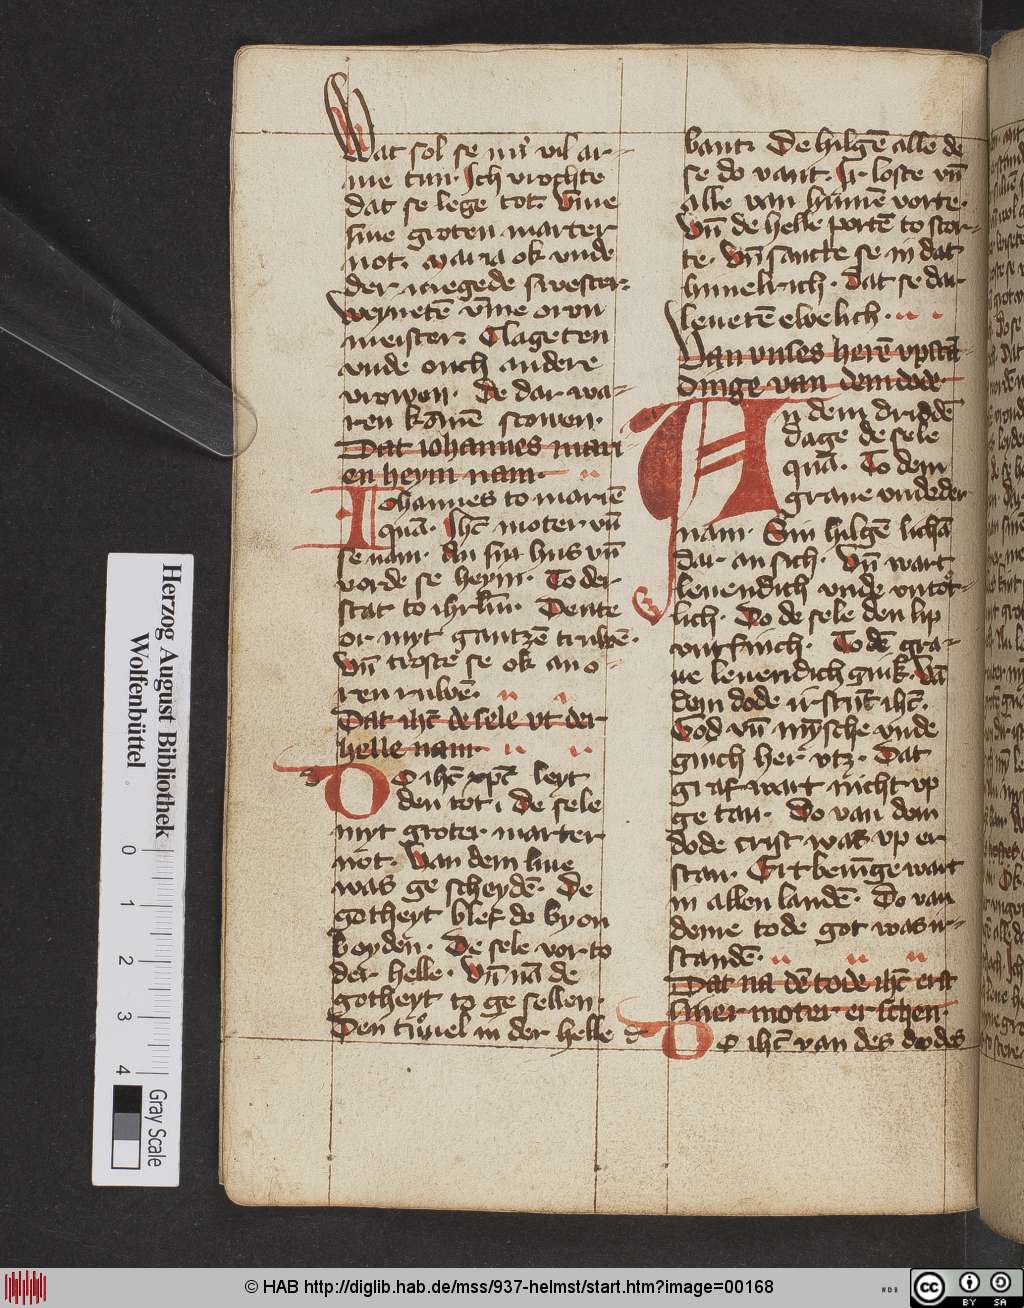 Wat sol se nu vil ar-
me tun. Ich vrochte
dat se lege tot. Vm̄e
sine groten marter
not. Maria ok vnde
der megede swester
Weyneten vm̄e oren
meister. Clageten
vnde ouch andere
vrowen. De dar wa-
ren kamē scowen.
Dat iohannes mari
en heym nam.
Iohannes to mariē
quā. Ihc̄ moter vn̄
se nam. An syn hus vn̄
vorde se heym. To der
stat to ihrl̄m. Dente
or myt gantzē truwē.
Vn̄ troste se ok an o-
ren ruwē.
Dat ihc̄ de sele vt der
helle nam
Do ihc̄ xpc̄ leyt
den tot. De sele
myt groter marter
not. Van dem liue
was ge scheydē. De
gotheyt blef de by on
beyden. De sele vor to
der helle. Vn̄ nā de
gotheyt to ge sellen.
Den tůuel in der helle
bant. De hilgē alle de
se do vant. Ir loste vn̄
alle van hinnē vorte.
Vn̄ de helle portē to stor-
te. Vn̄ sancte se in dat
himelrich. Dat se dar
leuetē ewelich.
Van vnses herē vpstā-
dinge van dem dode.
An dem driddē
dage de sele
quā. To dem
graue vnde der
nam. Sin hilgē lichā
dar an sich. Vn̄ wart
leuendich vnde vntot-
lich. Do de sele den lip
vntfinch. To dē gra-
ue leuendich ginк. Vā
dem dode irstūt ihc̄.
God vn̄ mÿsche vnde
ginch her vtz. Dat
graf wart nicht vp
ge tan. Do van dem
dode crist was vp er
stan. Ertbeuīge wart
in allen landē. Do van
deme tode got was ir-
standē.
Dat na dē tode ihc̄ erst
siner moter er schen.
Do ihc̄ van des dodes
Herzog August Bibliothek
Wolfenbüttel
0 1 2 3 4
Gray Scale
© HAB http://diglib.hab.de/mss/937-helmst/start.htm?image=00168
WDB
cc BY SA